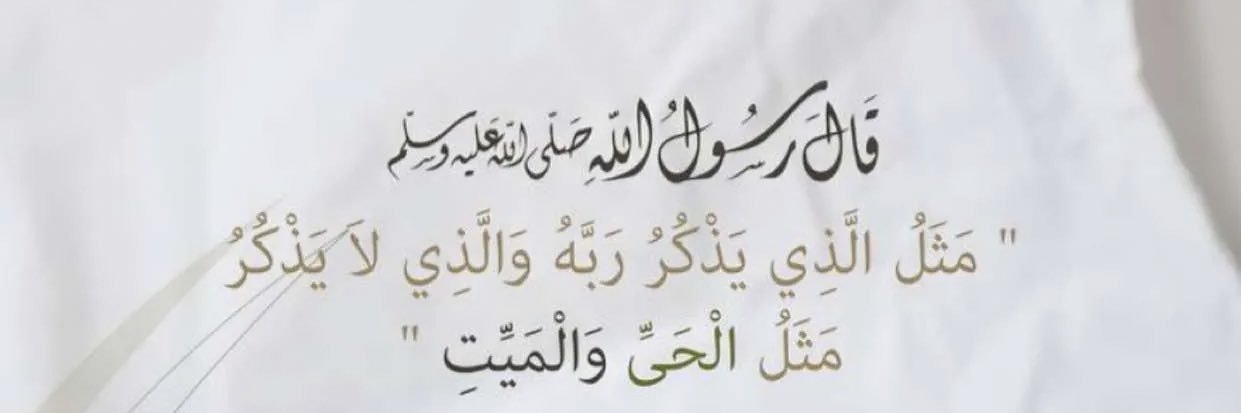 قَالَ رَسُولُ اللّهِ صَلّى اللّه عَليْه وسلّم
" مَثَلُ الَّذِي يَذْكُرُ رَبَّهُ وَالَّذِي لاَ يَذْكُرُ
مَثَلُ الْحَىِّ وَالْمَيِّتِ "